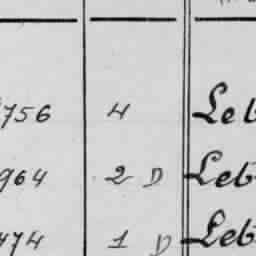 756 4 Leb
964 2 D Leb
474 1 D Leb